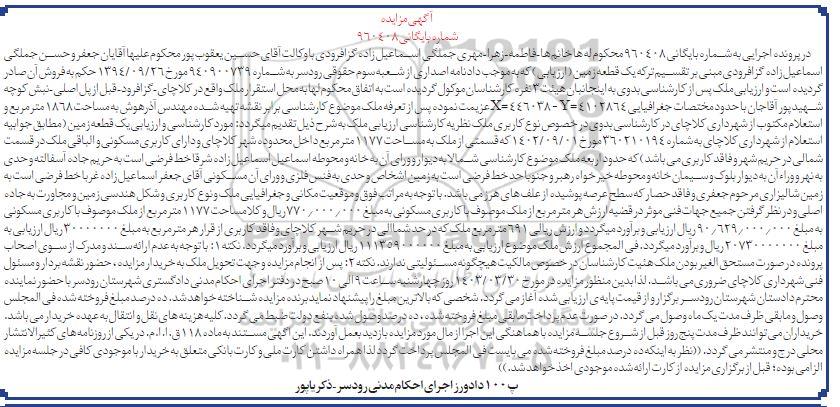 آگهی مزایده
شماره بایگانی ۹۶۰۴۰۸
در پرونده اجرایی به شماره بایگانی ۹۶۰۴۰۸ محکوم له ها خانم ها-فاطمه-زهرا-مهری جملگی اسماعیل زاده گزافرودی با وکالت آقای حسین یعقوب پور محکوم علیها آقایان جعفر و حسن جملگی
اسماعیل زاده گزافرودی مبنی بر تقسیم ترکه یک قطعه زمین (ارزیابی) که به موجب دادنامه اصداری از شعبه سوم حقوقی رودسر به شماره ۹۴۰۹۰۰۷۳۹ مورخ ۱۳۹۴/۰۹/۲۶ حکم به فروش آن صادر
گردیده است و ارزیابی ملک پس از کارشناسی بدوی به اینجانبان هیئت ۳ نفره کارشناسان موکول گردیده است به اتفاق محکوم لها به محل استقرار ملک واقع در کلاچای-گزافرود-قبل از پل اصلی-نبش کوچه
شهید پور آقاجان با حدود مختصات جغرافیایی X=۴۴۶۰۳۸-Y=۴۱۰۲۸۶۴ عزیمت نموده پس از تعرفه ملک موضوع کارشناسی برابر نقشه تهیه شده مهندس آذرهوش به مساحت ۱۸۶۸ مترمربع و
استعلام مکتوب از شهرداری کلاچای در کارشناسی بدوی در خصوص نوع کاربری ملک نظریه کارشناسی ارزیابی ملک به شرح ذیل تقدیم میگردد: مورد کارشناسی و ارزیابی یک قطعه زمین (مطابق جوابیه
استعلام از شهرداری کلاچای به شماره ۳۶۰۲۱۰۱۹۴ مورخ ۱۴۰۲/۰۹/۰۱ که قسمتی از ملک به مساحت ۱۱۷۷ مترمربع داخل محدوده شهر کلاچای و دارای کاربری مسکونی و الباقی ملک در قسمت
شمالی در حریم شهر و فاقد کاربری می باشد) که حدود اربعه ملک موضوع کارشناسی شمالا به دیوار و ورای آن به خانه و محوطه اسماعیل اسماعیل زاده شرقا خط فرضی است به حریم جاده آسفالته و حدی
به نهر و وراء آن به دیوار بلوک و سیمان خانه و محوطه خیرخواه رهبر و جنوبا حد خط فرضی است به زمین اشخاص و حدی به فنس فلزی و ورای آن مسکونی آقای جعفر اسماعیل زاده غربا خط فرضی است به
زمین شالیزاری مرحوم جعفری و فاقد حصار که سطح عرصه پوشیده از علف های هرز می باشد. با توجه به مراتب فوق و موقعیت مکانی و جغرافیایی ملک و نوع کاربری و شکل هندسی زمین و مجاورت به جاده
اصلی و در نظر گرفتن جمیع جهات فنی موثر در قضیه ارزش هر مترمربع از ملک موصوف با کاربری مسکونی به مبلغ ۷۷۰/۰۰۰/۰۰۰ ریال و کلا مساحت ۱۱۷۷ مترمربع از ملک موصوف با کاربری مسکونی
به مبلغ ۹۰/۶۲۹/۰۰۰/۰۰۰ ریال ارزیابی و برآورد میگردد و ارزش ریالی ۶۹۱ مترمربع ملک که در حد شمالی در حریم شهر کلاچای و فاقد کاربری از قرار هر مترمربع به مبلغ ۳۰۰۰۰۰۰۰ ریال ارزیابی به
مبلغ ۲۰۷۳۰۰۰۰۰۰۰ ریال و برآورد میگردد. فی المجموع ارزش ملک موضوع ارزیابی به مبلغ ۱۱۱۳۵۹۰۰۰۰۰۰ ریال ارزیابی و برآورد میگردد. نکته ۱: با توجه به عدم ارائه سند و مدرک از سوی اصحاب
پرونده در صورت مستحق الغیر بودن ملک هئیت کارشناسان در خصوص مالکیت هیچگونه مسئولیتی ندارند. نکته ۲: پس از انجام مزایده و جهت تحویل ملک به خریدار مزایده، حضور نقشه بردار و مسئول
فنی شهرداری کلاچای ضروری می باشد. لذا بدین منظور مزایده در مورخ ۱۴۰۳/۰۳/۳۰ روز چهارشنبه ساعت ۹ الی ۱۰ صبح در دفتر اجرای احکام مدنی دادگستری شهرستان رودسر با حضور نماینده
محترم دادستان شهرستان رودسر برگزار و از قیمت پایه ی ارزیابی شده آغاز می گردد. شخصی که بالاترین مبلغ را پیشنهاد نماید برنده مزایده شناخته خواهد شد. ده درصد مبلغ فروخته شده فی المجلس
وصول و مابقی ظرف مدت یک ماه وصول می گردد. در صورت عدم پرداخت مابقی مبلغ فروخته شده، ده درصد وصول شده به نفع دولت ضبط می گردد. کلیه هزینه های نقل و انتقال به عهده خریدار می باشد.
خریداران می توانند ظرف مدت پنج روز قبل از شروع جلسه مزایده با هماهنگی این اجرا از مال مورد مزایده بازدید بعمل آوردند. این آگهی مستند به ماده ۱۱۸ ق.ا.ا.م. در یکی از روزنامه های کثیرالانتشار
محلی درج و منتشر می گردد. ((نظر به اینکه ده درصد مبلغ فروخته شده می بایست فی المجلس پرداخت گردد لذا همراه داشتن کارت ملی و کارت بانکی متعلق به خریدار با موجودی کافی در جلسه مزایده
الزامی بوده؛ قبل از برگزاری مزایده از کارت ارائه شده موجودی اخذ خواهد شد.))
پ ۱۰۰ دادورز اجرای احکام مدنی رودسر-ذکریاپور